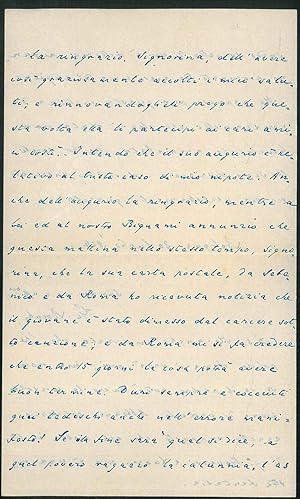 La ringrazio, Signorina, dell'avere
così graziosamente accolti i miei salu-
ti, e rinnovandoglieli prego che que-
sta volta ella li partecipi ai cari ami-
ci costì. Intendo che il suo augurio è al-
lativo al triste caso di mio nipote. An-
che dell'augurio la ringrazio, mentre a
lei ed al nostro Bignami annunzio che
questa mattina nello stesso tempo, signo-
rina, che la sua carta postale, da
e da Roma ho ricevuta notizia che
il giovane è stato dimesso dal carcere sotto
cauzione, e da Roma mi si fa credere
che entro 15 giorni la cosa potrà avere
buon termine. Duri sempre e cocciuti
quei tedeschi anche nell'errore mani-
festo! Se da fine sarà qual si dice, a
quel povero ragazzo la calunnia, l'as